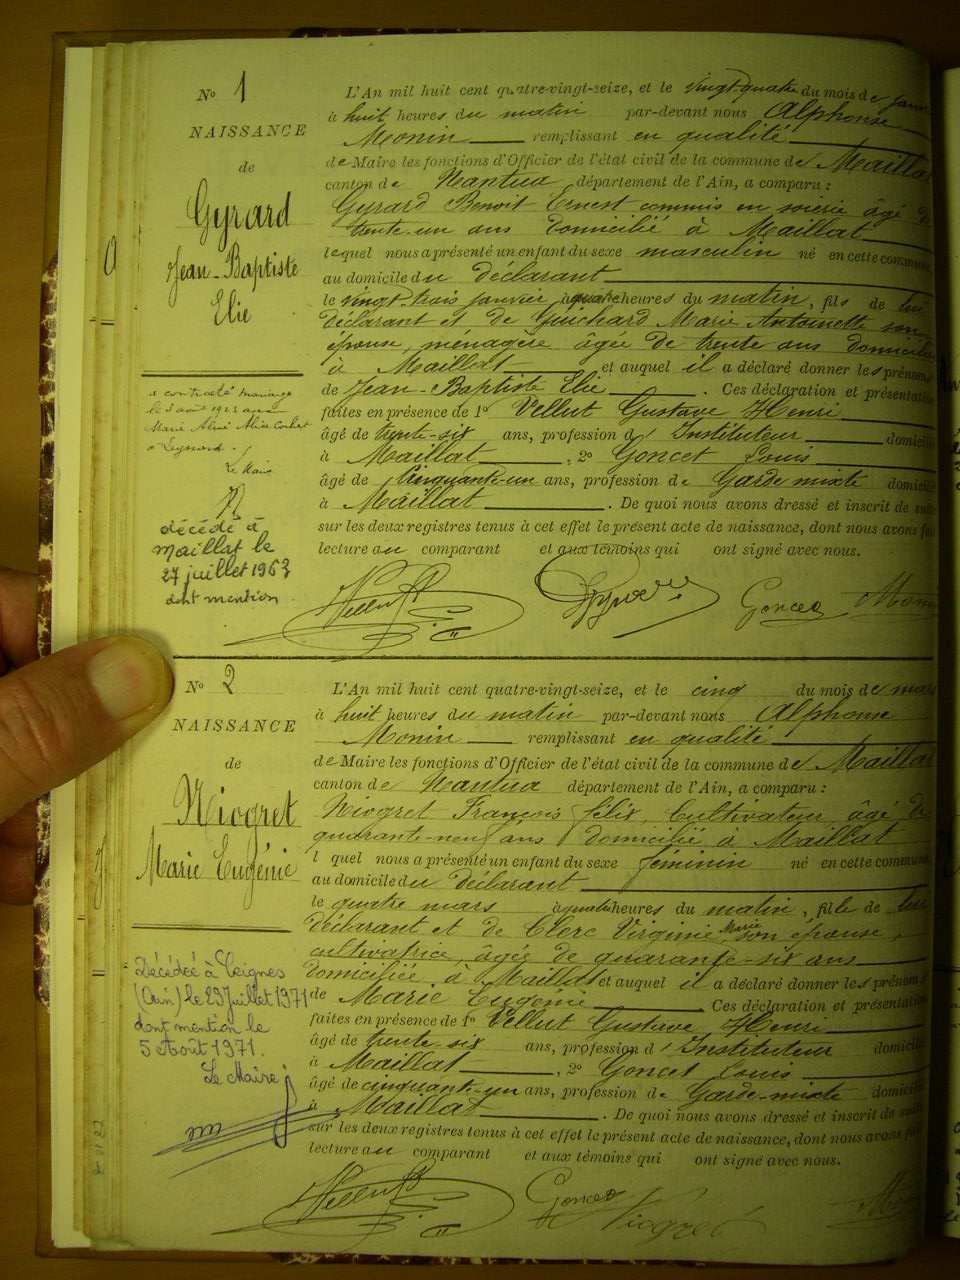 N° 1
NAISSANCE
de
Gyrard
Jean-Baptiste
Elie
a contracté mariage
le
Marie Aline Alice
à Leyssard.
Le Maire
décédé à
Maillat le
27 juillet 1963
dont mention
L'An mil huit cent quatre-vingt-seize, et le vingt-quatre du mois de janv
à huit heures du matin par-devant nous Alphonse
Monin remplissant en qualité
de Maire les fonctions d'Officier de l'état civil de la commune de Maillat
canton de Nantua département de l'Ain, a comparu :
Gyrard Benoit Ernest commis en soierie âgé de
trente-un ans domicilié à Maillat
lequel nous a présenté un enfant du sexe masculin né en cette commune
au domicile du déclarant
le vingt-trois janvier à quatre heures du matin, fils de lui
déclarant et de Guichard Marie Antoinette son
épouse, ménagère âgée de trente ans domiciliée
à Maillat et auquel il a déclaré donner les prénoms
de Jean-Baptiste Elie. Ces déclaration et présentation
faites en présence de 1° Vellut Gustave Henri
âgé de trente-six ans, profession d'Instituteur domicilié
à Maillat, 2° Goncet Louis
âgé de Cinquante-un ans, profession de Garde mixte domicilié
à Maillat. De quoi nous avons dressé et inscrit de suite
sur les deux registres tenus à cet effet le présent acte de naissance, dont nous avons fait
lecture au comparant et aux témoins qui ont signé avec nous.
Vellut Gyrard Goncet Monin
N° 2
NAISSANCE
de
Niogret
Marie Eugénie
Décédée à Ceignes
(Ain) le 29 Juillet 1971
dont mention le
5 Août 1971.
Le Maire
L'An mil huit cent quatre-vingt-seize, et le cinq du mois de mars
à huit heures du matin par-devant nous Alphonse
Monin remplissant en qualité
de Maire les fonctions d'Officier de l'état civil de la commune de Maillat
canton de Nantua département de l'Ain, a comparu :
Niogret François félix, Cultivateur, âgé de
quarante-neuf ans domicilié à Maillat
l quel nous a présenté un enfant du sexe féminin né en cette commune
au domicile du déclarant
le quatre mars à quatre heures du matin, fille de lui
déclarant et de Clerc Virginie Marie son épouse,
cultivatrice, âgée de quarante-six ans
domiciliée à Maillat et auquel il a déclaré donner les prénoms
de Marie Eugénie. Ces déclaration et présentation
faites en présence de 1° Vellut Gustave Henri
âgé de trente-six ans, profession d'Instituteur domicilié
à Maillat, 2° Goncet Louis
âgé de cinquante-un ans, profession de Garde-mixte domicilié
à Maillat. De quoi nous avons dressé et inscrit de suite
sur les deux registres tenus à cet effet le présent acte de naissance, dont nous avons fait
lecture au comparant et aux témoins qui ont signé avec nous.
Vellut Goncet Niogret Monin